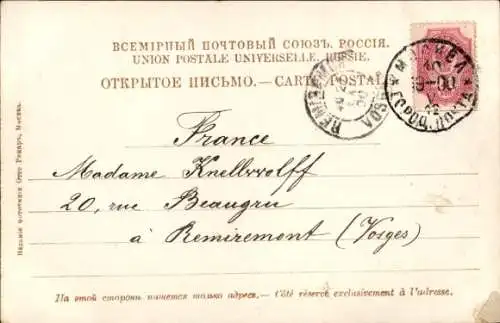 ВСЕМІРНЫЙ ПОЧТОВЫЙ СОЮЗЪ. РОССІЯ.
UNION POSTALE UNIVERSELLE. RUSSIE.
ОТКРЫТОЕ ПИСЬМО.—CARTE POSTALE
МОСКВА
10
19-00
ГОРОД. ПОЧТА
REMIREMONT
VOSGES
France
Madame Knellwolff
20, rue Beaugru
à Remiremont (Vosges)
На этой сторонѣ пишется только адресъ.—Côté réservé exclusivement à l'adresse.
Отто Ренаръ, Москва.